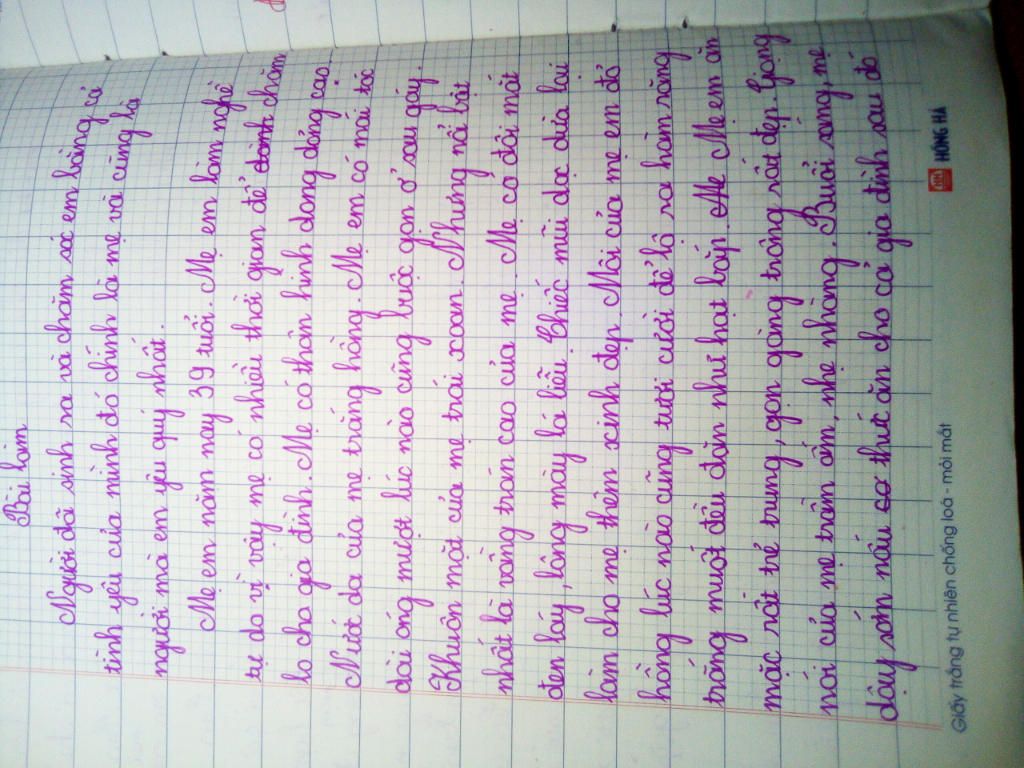 Bài làm
Người đã sinh ra và chăm sóc em bằng cả
tình yêu của mình đó chính là mẹ và cũng là
người mà em yêu quý nhất.
Mẹ em năm nay 39 tuổi. Mẹ em làm nghề
tự do vì vậy mẹ có nhiều thời gian để dành chăm
lo cho gia đình. Mẹ có thân hình dong dỏng cao.
Nước da của mẹ trắng hồng. Mẹ em có mái tóc
dài óng mượt lúc nào cũng được gọn ở sau gáy.
Khuôn mặt của mẹ trái xoan. Nhưng nổi bật
nhất là vầng trán cao của mẹ. Mẹ có đôi mắt
đen láy, lông mày lá liễu. Chiếc mũi dọc dừa lại
làm cho mẹ thêm xinh đẹp. Môi của mẹ em đỏ
hồng lúc nào cũng tươi cười để lộ ra hàm răng
trắng muốt đều đặn như hạt bắp. Mẹ Mẹ em ăn
mặc rất trẻ trung, gọn gàng trông rất đẹp. Giọng
nói của mẹ trầm ấm, nhẹ nhàng. Buổi sáng, mẹ
dậy sớm nấu thức ăn cho cả gia đình sau đó
HỒNG HÀ
Giấy trắng tự nhiên chống loá - mỏi mắt